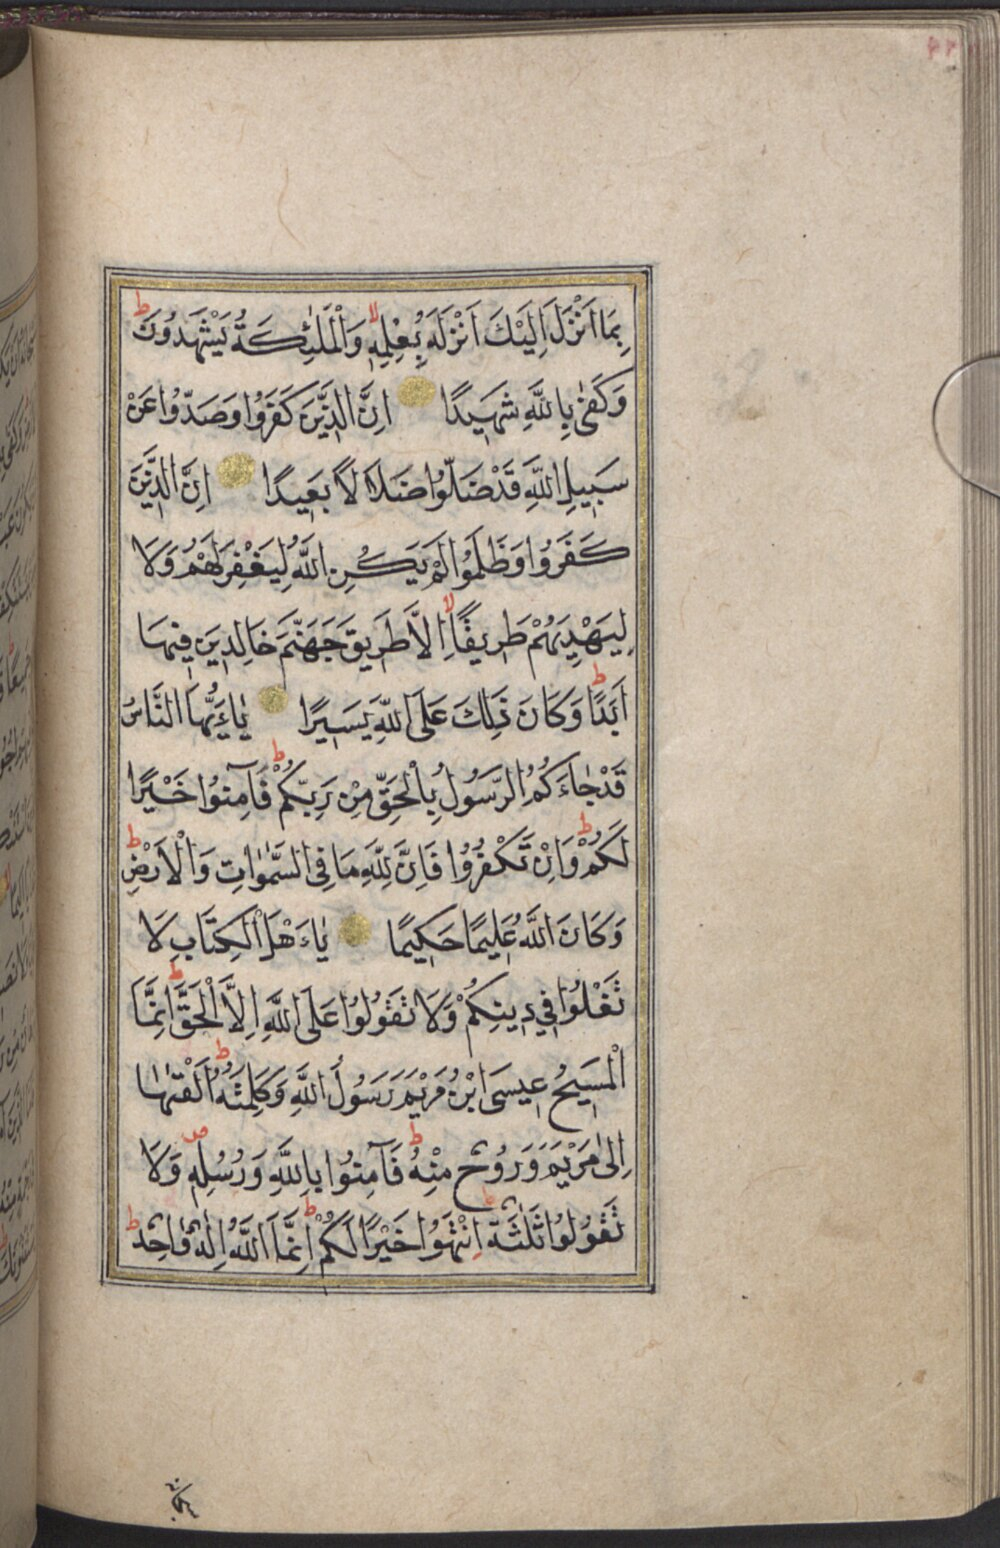 بِمَا اَنْزَلَ اِلَيْكَ اَنْزَلَهُ بِعِلْمِهٖ وَالْمَلٰٓئِكَةُ يَشْهَدُونَ
وَكَفٰى بِاللّٰهِ شَهِيدًا اِنَّ الَّذِينَ كَفَرُوا وَصَدُّوا عَنْ
سَبِيلِ اللّٰهِ قَدْ ضَلُّوا ضَلَالًا بَعِيدًا اِنَّ الَّذِينَ
كَفَرُوا وَظَلَمُوا لَمْ يَكُنِ اللّٰهُ لِيَغْفِرَ لَهُمْ وَلَا
لِيَهْدِيَهُمْ طَرِيقًا اِلَّا طَرِيقَ جَهَنَّمَ خَالِدِينَ فِيهَا
اَبَدًا وَكَانَ ذٰلِكَ عَلَى اللّٰهِ يَسِيرًا يَٓا اَيُّهَا النَّاسُ
قَدْ جَٓاءَكُمُ الرَّسُولُ بِالْحَقِّ مِنْ رَبِّكُمْ فَاٰمِنُوا خَيْرًا
لَكُمْ وَاِنْ تَكْفُرُوا فَاِنَّ لِلّٰهِ مَا فِي السَّمٰوَاتِ وَالْاَرْضِ
وَكَانَ اللّٰهُ عَلِيمًا حَكِيمًا يَٓا اَهْلَ الْكِتَابِ لَا
تَغْلُوا فِي دِينِكُمْ وَلَا تَقُولُوا عَلَى اللّٰهِ اِلَّا الْحَقَّ اِنَّمَا
الْمَسِيحُ عِيسَى ابْنُ مَرْيَمَ رَسُولُ اللّٰهِ وَكَلِمَتُهُ اَلْقٰيهَا
اِلٰى مَرْيَمَ وَرُوحٌ مِنْهُ فَاٰمِنُوا بِاللّٰهِ وَرُسُلِهٖ وَلَا
تَقُولُوا ثَلٰثَةٌ اِنْتَهُوا خَيْرًا لَكُمْ اِنَّمَا اللّٰهُ اِلٰهٌ وَاحِدٌ